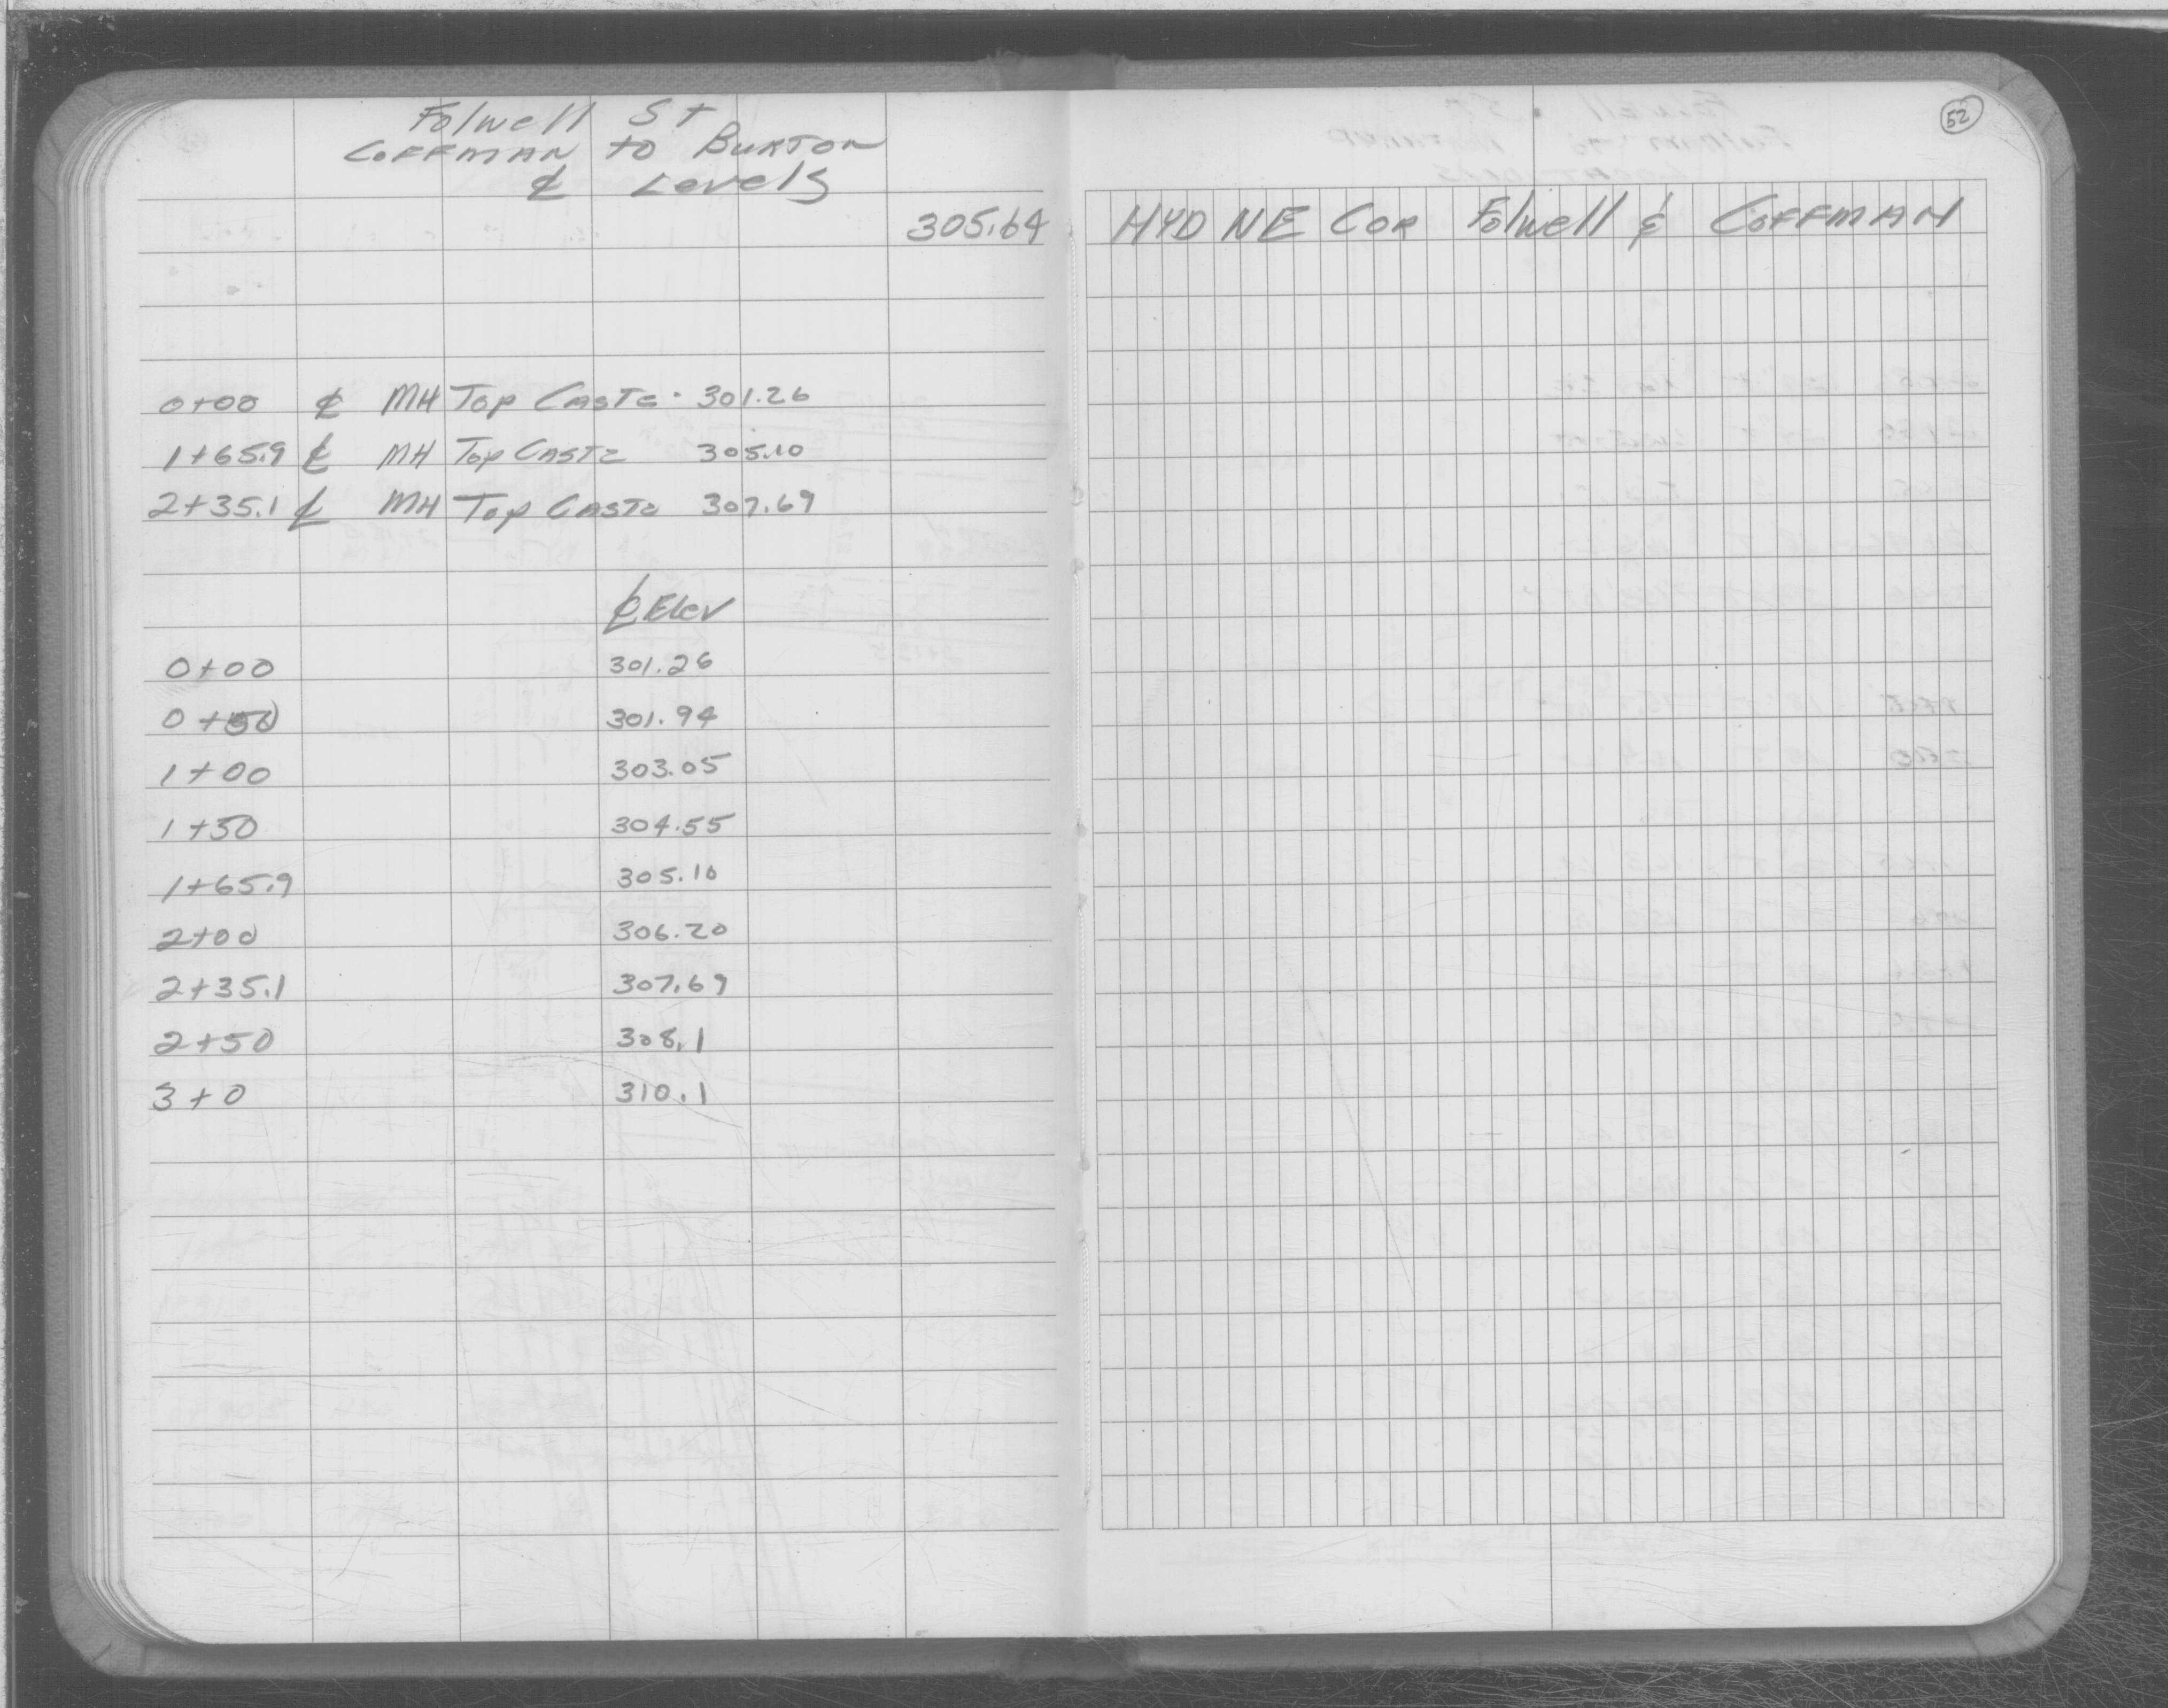 Folwell St
COFFMAN to BURTON
℄ Levels
52
305.64 HYD NE COR Folwell & COFFMAN
0+00 ℄ MH Top Caste. 301.26
1+65.9 ℄ MH Top Caste 305.10
2+35.1 ℄ MH Top Caste 307.69
℄ Elev
0+00 301.26
0+50 301.94
1+00 303.05
1+50 304.55
1+65.9 305.10
2+00 306.20
2+35.1 307.69
2+50 308.1
3+0 310.1